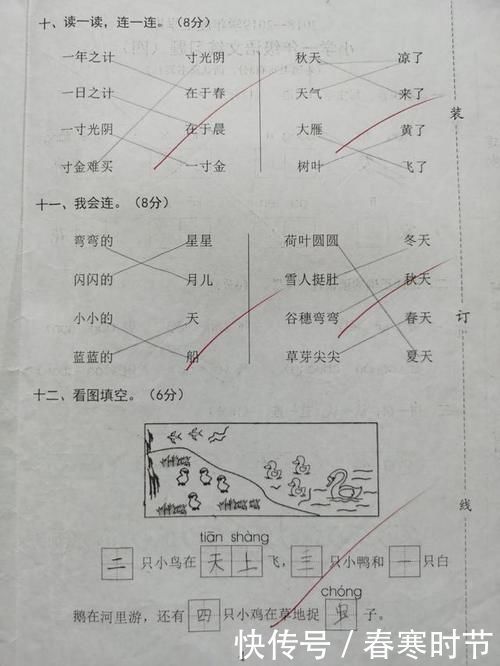 十、读一读，连一连。（8分）
一年之计 寸光阴 秋天 凉了
一日之计 在于春 天气 来了
一寸光阴 在于晨 大雁 黄了
寸金难买 一寸金 树叶 飞了
十一、我会连。（8分）
弯弯的 星星 荷叶圆圆 冬天
闪闪的 月儿 雪人挺肚 秋天
小小的 天 谷穗弯弯 春天
蓝蓝的 船 草芽尖尖 夏天
十二、看图填空。（6分）
tiān shàng
二 只小鸟在 天上 飞，三 只小鸭和 一 只白
chóng
鹅在河里游，还有 四 只小鸡在草地捉 虫 子。
装
订
线
快传号 / 春寒时节